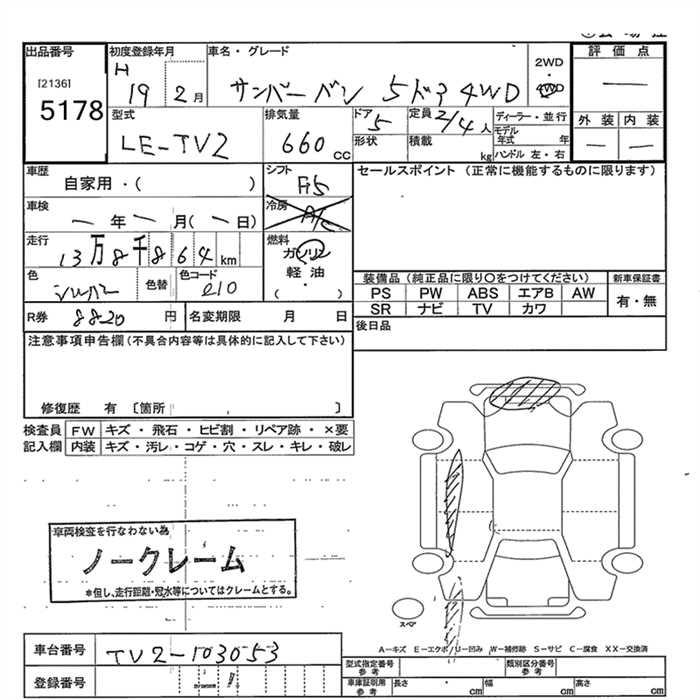 出品番号 初度登録年月 車名・グレード 2WD 評価点
[2136] H サンバーバン 5ドア 4WD 4WD —
5178 19 2月
型式 排気量 ドア 定員 ディーラー・並行 外装 内装
LE-TV2 660cc 5 2/4人 モデル年式 年 — —
形状 積載 kg ハンドル 左・右
車歴 シフト セールスポイント (正常に機能するものに限ります)
自家用・( ) F5
車検 冷房
— 年 — 月(— 日) A/C
走行 燃料
13万8千864km ガソリン
色 色替 色コード 軽油 装備品(純正品に限り○をつけてください) 新車保証書
シルバー 210 (・) PS PW ABS エアB AW 有・無
SR ナビ TV カワ
R券 8820円 名変期限 月 日 後日品
注意事項申告欄(不具合内容等は具体的に記入して下さい)
修復歴 有 〔箇所 〕
検査員 FW キズ・飛石・ヒビ割・リペア跡・×要
記入欄 内装 キズ・汚レ・コゲ・穴・スレ・キレ・破レ
車両検査を行なわない為
ノークレーム
*但し、走行距離・冠水等についてはクレームとする。
スペア
A−キズ E−エクボ U−凹み W−補修跡 S−サビ C−腐食 XX−交換済
車台番号 TV2-103053 型式指定番号 類別区分番号
参考 参考
登録番号 車庫証明用 長さ 幅 高さ
参考 cm cm cm